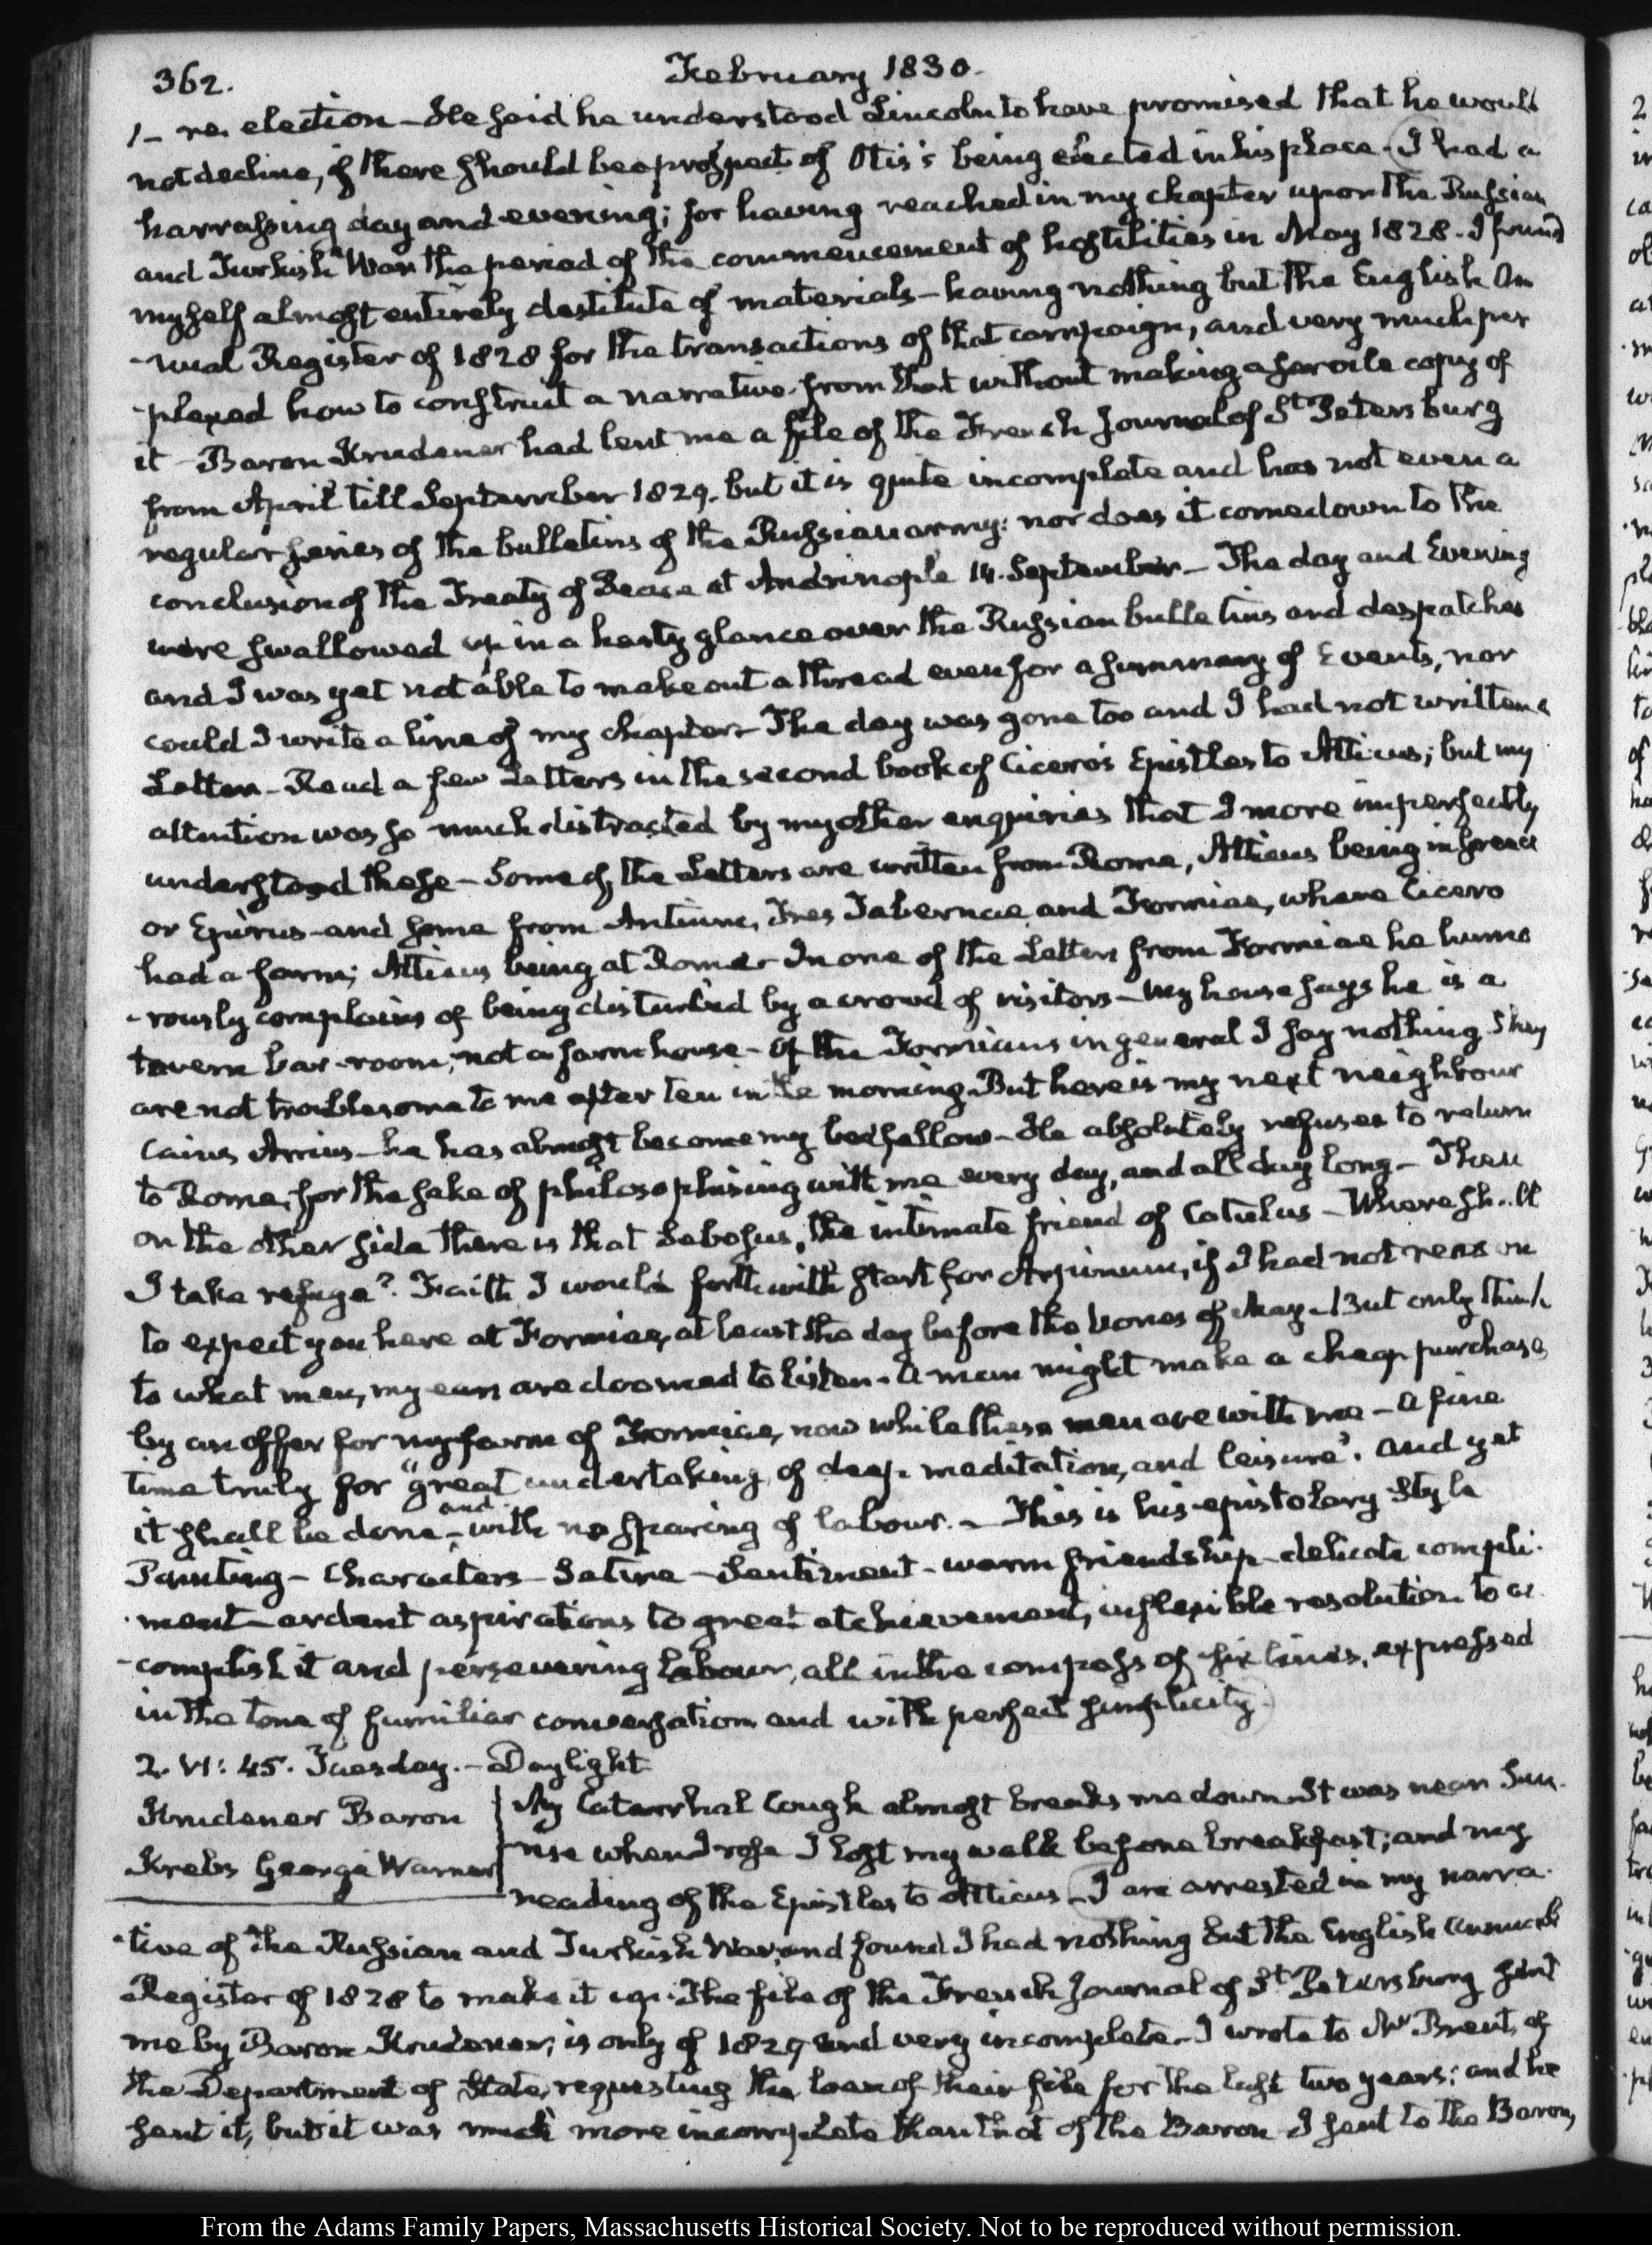 362.
February 1830.
1- re. election - He said he understood Lincoln to have promised that he would
not decline, if there should be a prospect of Otis's being elected in his place. I had a
harrassing day and evening; for having reached in my chapter upon the Russian
and Turkish War the period of the commencement of hostilities in May 1828. I found
myself almost entirely destitute of materials - having nothing but the English An
-nual Register of 1828 for the transactions of that campaign, and very much per
-plexed how to construct a narrative from that without making a servile copy of
it - Baron Krudener had lent me a file of the French Journal of St. Petersburg
from April till September 1829. but it is quite incomplete and has not even a
regular series of the bulletins of the Russian army: nor does it come down to the
conclusion of the Treaty of Peace at Andrinople 14. September - The day and Evening
were swallowed up in a hasty glance over the Russian bulletins and despatches
and I was yet not able to make out a thread even for a summary of Events, nor
could I write a line of my chapter - The day was gone too and I had not written a
Letter - Read a few Letters in the second book of Cicero's Epistles to Atticus; but my
attention was so much distracted by my other enquiries that I more imperfectly
understood these - Some of the Letters are written from Rome, Atticus being in Greece
or Epirus - and some from Antium, Tres Tabernae and Formiae, where Cicero
had a farm; Atticus being at Rome - In one of the Letters from Formiae he humo
-rously complains of being disturbed by a crowd of visitors - My house says he is a
tavern bar-room, not a farm house - Of the Formians in general I say nothing They
are not troublesome to me after ten in the morning. But here is my next neighbour
Caius Arrius - he has almost become my bedfellow - He absolutely refuses to return
to Rome, for the sake of philosophising with me every day, and all day long - Then
on the other side there is that Sebosus, the intimate friend of Catulus - Where shall
I take refuge? Faith I would forthwith start for Arpinum, if I had not reason
to expect you here at Formiae, at least the day before the Nones of May - But only think
to what men, my ears are doomed to listen. A man might make a cheap purchase
by an offer for my farm of Formiae, now while these men are with me - A fine
time truly for "great undertaking, of deep meditation, and leisure". And yet
it shall be done, and with no sparing of labour. - This is his epistolary style
Painting - Characters - Satire - Sentiment - warm friendship - delicate compli-
-ment - ardent aspirations to great atchievement, inflexible resolution to ac
-complish it and persevering labour, all in the compass of six lines, expressed
in the tone of familiar conversation and with perfect simplicity.
2. VI: 45. Tuesday. - Daylight
Krudener Baron
Krebs George Warner
My Catarrhal Cough almost breaks me down. It was near Sun-
rise when I rose I lost my walk before breakfast; and my
reading of the Epistles to Atticus - I am arrested in my narra-
-tive of the Russian and Turkish War, and found I had nothing but the English Annual
Register of 1828 to make it up. The file of the French Journal of St. Petersburg sent
me by Baron Krudener, is only of 1829 and very incomplete. I wrote to Mr Brent, of
the Department of State, requesting the loan of their file for the last two years; and he
sent it, but it was much more incomplete than that of the Baron I sent to the Baron,
From the Adams Family Papers, Massachusetts Historical Society. Not to be reproduced without permission.